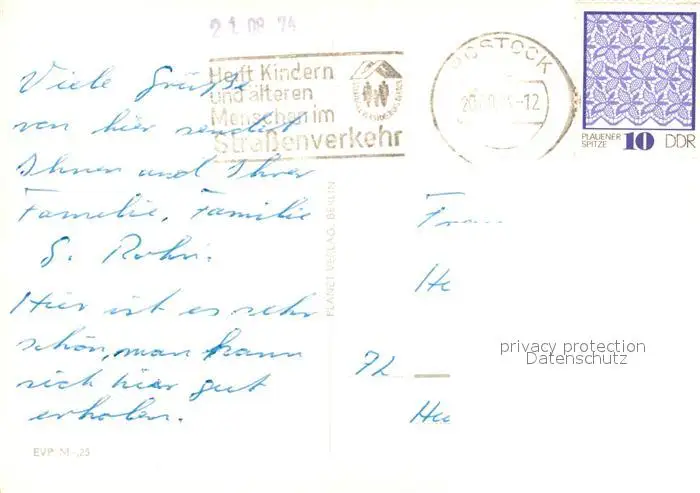 21 08 74
Helft Kindern
und älteren
Menschen im
Straßenverkehr
ROSTOCK
-12
PLAUENER
SPITZE 10 DDR
Viele Grüße
von hier sendet
Ihnen und Ihrer
Familie, Familie
G. Rohr.
Hier ist es sehr
schön, man kann
sich hier gut
erholen.
EVP M -,25
PLANET VERLAG, BERLIN
Frau
He
7L
privacy protection
Datenschutz